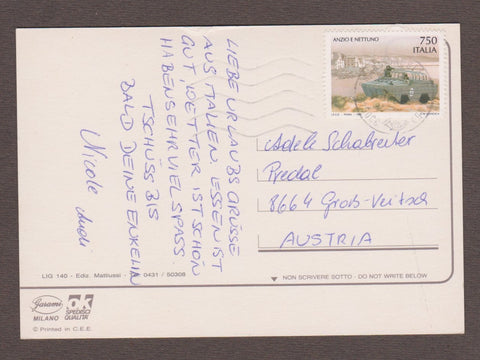 LIEBE URLAUBSGRÜSSE
AUS ITALIEN ESSEN IST
GUT, WETTER IST SCHÖN
HABEN SEHR VIEL SPASS.
TSCHÜSS BIS
BALD DEINE ENKELIN
Nicole Andi
ANZIO E NETTUNO
750
ITALIA
Adele Schabreiter
Predal
8664 Groß-Veitsch
AUSTRIA
LIG 140 - Ediz. Matilussi - Tel. 0431 / 50308
▼ NON SCRIVERE SOTTO - DO NOT WRITE BELOW
Garami
MILANO
OK
SPEDISCI
QUALITA'
© Printed in C.E.E.